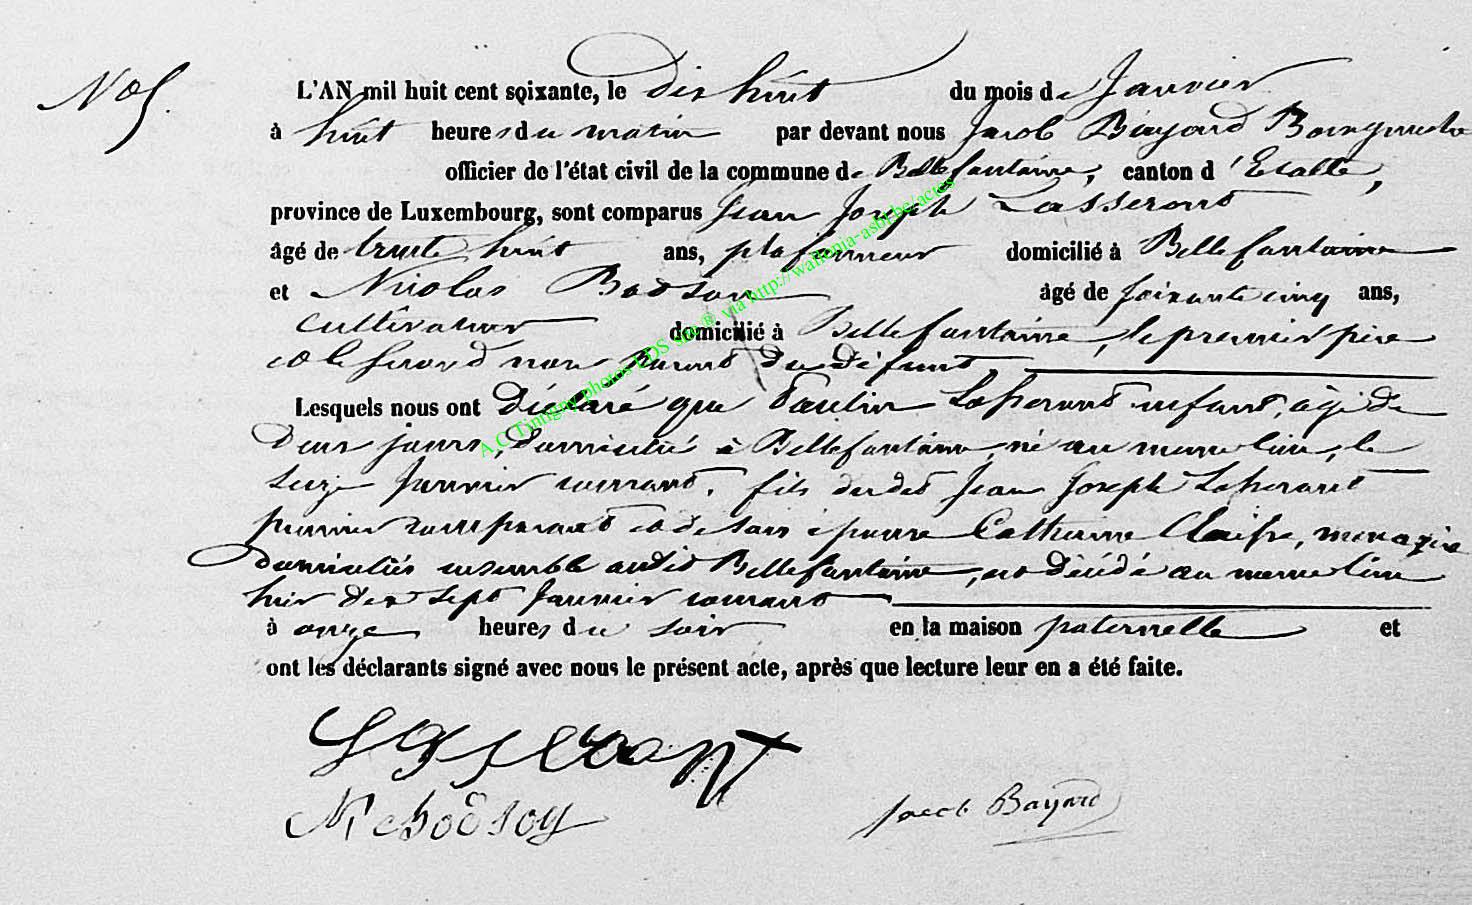 N° 5.
L'AN mil huit cent soixante, le dix huit du mois de Janvier
à huit heures du matin par devant nous Jacob Bayard Bourgmestre
officier de l'état civil de la commune de Bellefontaine, canton d'Etalle,
province de Luxembourg, sont comparus Jean Joseph Lasserant
âgé de trente huit ans, plafonneur domicilié à Bellefontaine
et Nicolas Bodson âgé de soixante cinq ans,
cultivateur domicilié à Bellefontaine, le premier père
et le second non parent du défunt
Lesquels nous ont déclaré que Paulin Lasserant enfant, âgé de
deux jours, domicilié à Bellefontaine, né au même lieu, le
seize Janvier courant, fils dudit Jean Joseph Lasserant
premier comparant et de son épouse Catherine Claisse, ménagère
domiciliés ensemble audit Bellefontaine, est décédé au même lieu
hier dix sept Janvier courant
à onze heures du soir en la maison paternelle et
ont les déclarants signé avec nous le présent acte, après que lecture leur en a été faite.
Jacob Bayard
A.C. Tintigny photos EDS sur ® via http://wallonia-asbl.be/actes